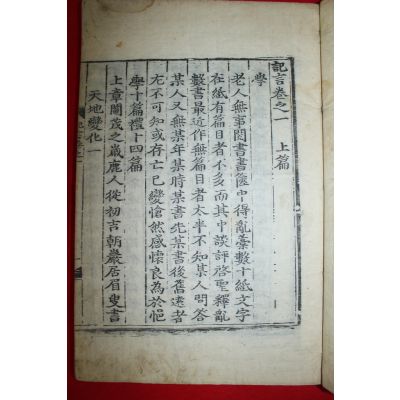 記言卷之一 上篇
學
老人無事閱書書篋中得亂藁數十紙文字
在紙有篇目者不多而其中談評啓聖釋亂
數書最近作無篇目者太半不知某人問答
某人又無某年某時某書先某書後舊遠者
尤不可知或存亡已變愴然感懷良為於悒
學十篇禮十四篇
上章閹茂之歲鹿人從初吉朝巖居眉叟書
天地變化一